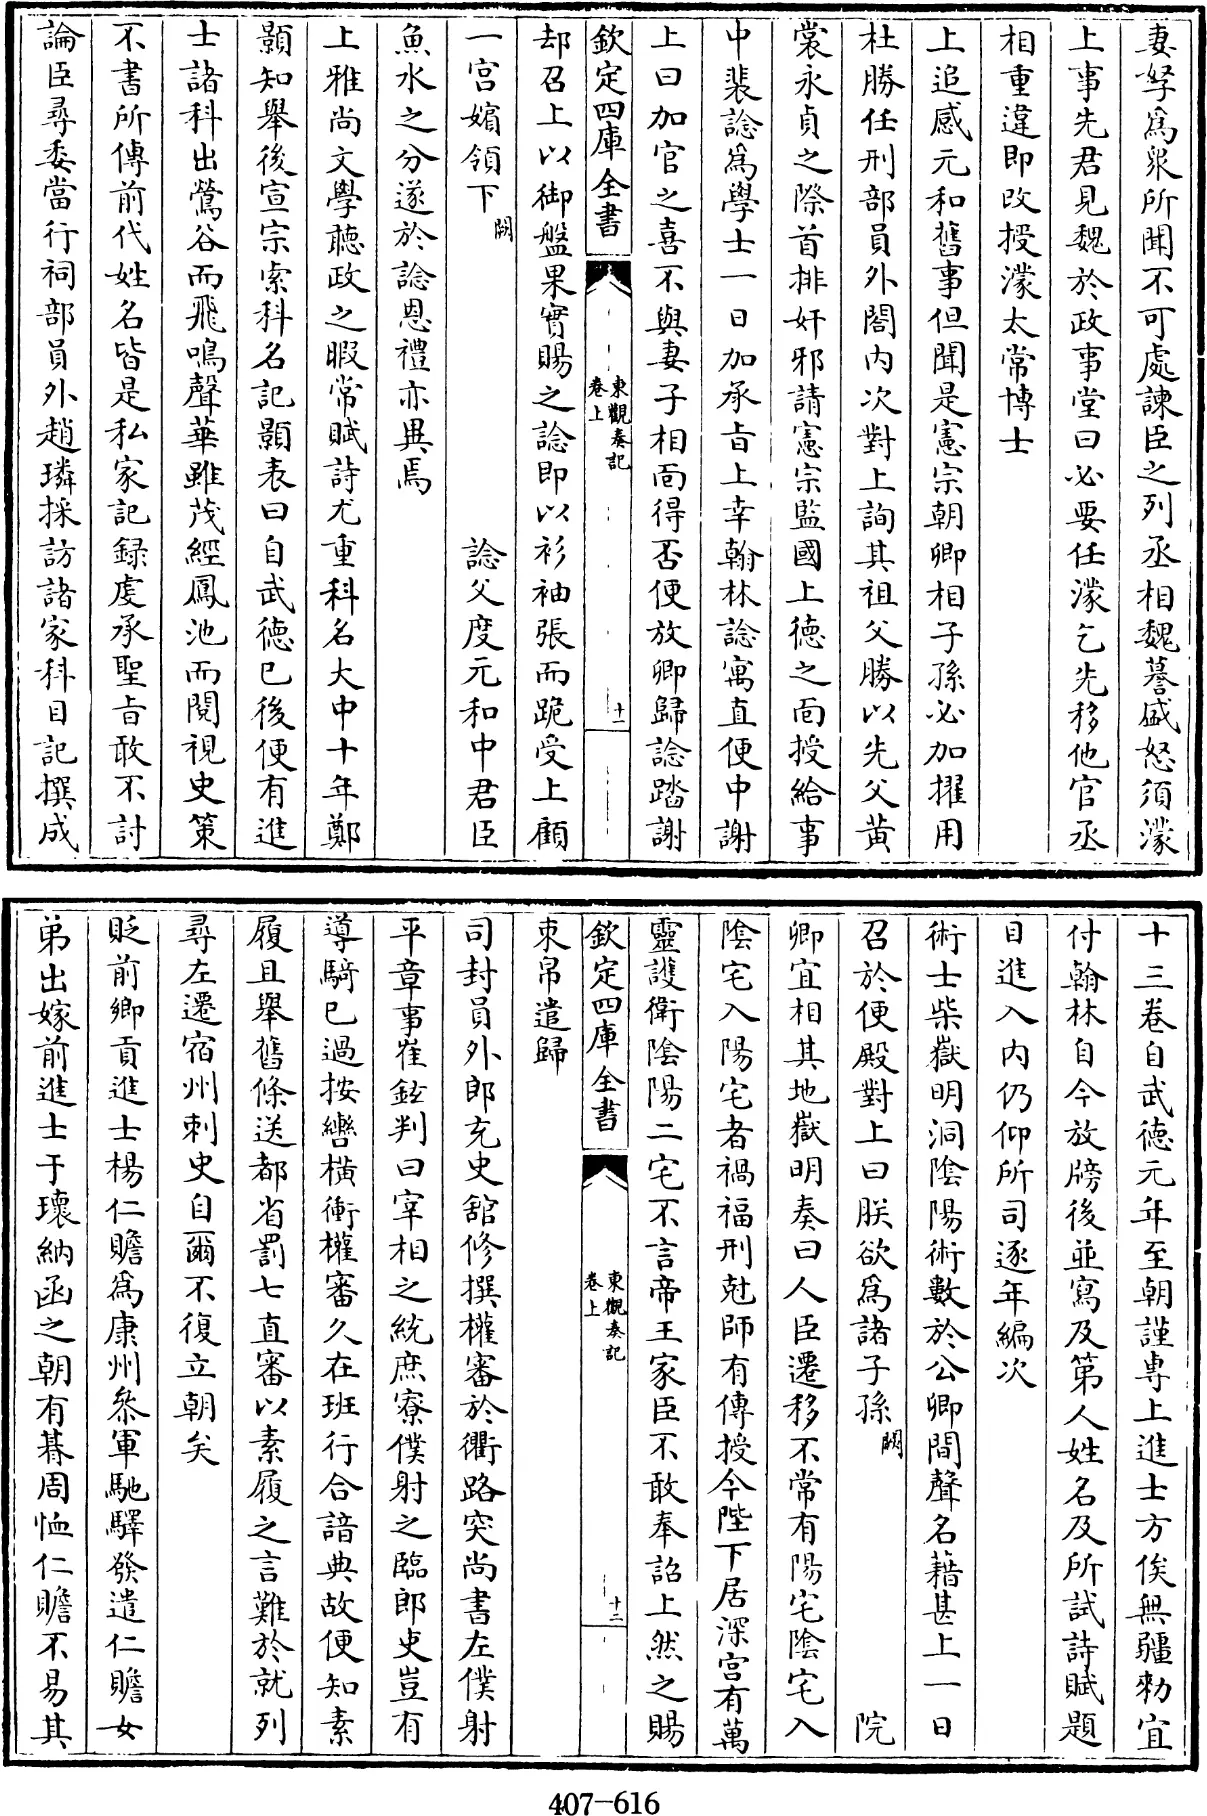 妻孥為衆所聞不可處諫臣之列丞相魏謩盛怒須濛
上事先君見魏於政事堂曰必要任濛乞先移他官丞
相重違即改授濛太常博士
上追感元和舊事但聞是憲宗朝卿相子孫必加擢用
杜勝任刑部員外閤内次對上詢其祖父勝以先父黄
裳永貞之際首排奸邪請憲宗監國上德之面授給事
中裴諗為學士一日加承㫖上幸翰林諗寓直便中謝
上曰加官之喜不與妻子相面得否便放卿歸諗蹈謝
欽定四庫全書
東觀奏記
卷上
十一
却召上以御盤果實賜之諗即以衫袖張而跪受上顧
一宫嬪領下闕 諗父度元和中君臣
魚水之分遂於諗恩禮亦異焉
上雅尚文學聴政之暇常賦詩尤重科名大中十年鄭
顥知舉後宣宗索科名記顥表曰自武徳已後便有進
士諸科出鶯谷而飛鳴聲華雖茂經鳳池而閱視史策
不書所傳前代姓名皆是私家記録䖍承聖㫖敢不討
論臣尋委當行祠部員外趙璘採訪諸家科目記撰成
十三卷自武德元年至朝謹專上進士方俟無疆勑宜
付翰林自今放牓後並寫及第人姓名及所試詩賦題
目進入内仍仰所司逐年編次
術士柴嶽明洞陰陽術數於公卿間聲名藉甚上一日
召於便殿對上曰朕欲為諸子孫闕 院
卿宜相其地嶽明奏曰人臣遷移不常有陽宅陰宅入
陰宅入陽宅者禍福刑尅師有傳授今陛下居深宫有萬
靈護衛陰陽二宅不言帝王家臣不敢奉詔上然之賜
欽定四庫全書
東觀奏記
卷上
十二
束帛遣歸
司封員外郎充史舘修撰權審於衢路突尚書左僕射
平章事崔鉉判曰宰相之統庶寮僕射之臨郎吏豈有
導騎已過按轡横衝權審久在班行合諳典故便知素
履且舉舊條送都省罰七直審以素履之言難於就列
尋左遷宿州刺史自爾不復立朝矣
貶前鄉貢進士楊仁贍為康州叅軍馳驛發遣仁贍女
弟出嫁前進士于瓌納函之朝有朞周恤仁贍不易其
407-616